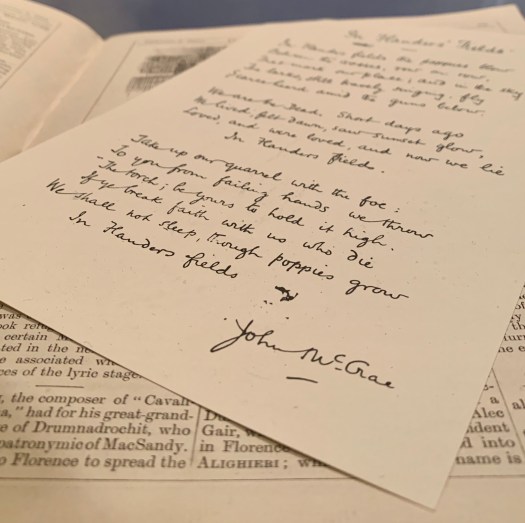 In Flanders' Fields
In Flanders fields the poppies grow
Between the crosses, row on row,
That mark our place; and in the sky
The larks, still bravely singing, fly
Scarce heard amid the guns below.
We are the Dead. Short days ago
We lived, felt dawn, saw sunset glow,
Loved, and were loved, and now we lie
In Flanders fields.
Take up our quarrel with the foe:
To you from failing hands we throw
The torch; be yours to hold it high.
If ye break faith with us who die
We shall not sleep, though poppies grow
In Flanders fields
John McCrae
was
certain
ted in the
e associated
ces of the lyric stage.
, the composer of "Cavall
a," had for his great-grand-
e of Drumnadrochit, who
patronymic of MacSandy.
o Florence to spread the
Gair,
in Florence
ALIGHIERI;
al
Alee
dent
d into
name is